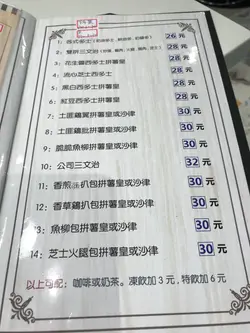 1: 各式多士 26 元
2: 雙拼三文治 28 元
3: 花生醬西多士拼薯皇 28 元
4: 流心芝士西多士 28 元
5: 黑白西多士拼薯皇 28 元
6: 紅豆西多士拼薯皇 28 元
7: 土匪雞翼拼薯皇或沙律 30 元
8: 土匪雞扒拼薯皇或沙律 30 元
9: 脆脆魚柳拼薯皇或沙律 30 元
10: 公司三文治 32 元
11: 香煎扒包拼薯皇或沙律 30 元
12: 香草雞扒包拼薯皇或沙律 30 元
13: 魚柳包拼薯皇或沙律 30 元
14: 芝士火腿包拼薯皇或沙律 30 元
以上勾配: 咖啡或奶茶。凍飲加 3 元, 特飲加 6 元